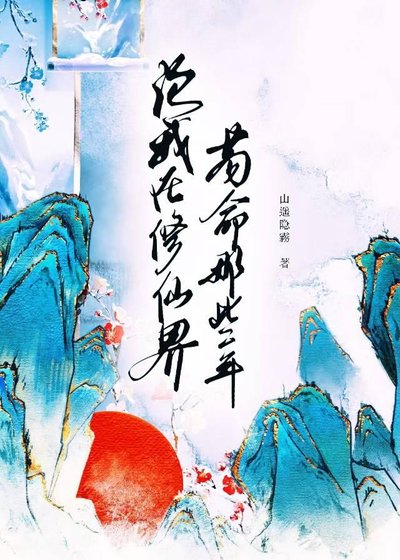 论我在修仙界
苟命那些年
山遥隐霧 著